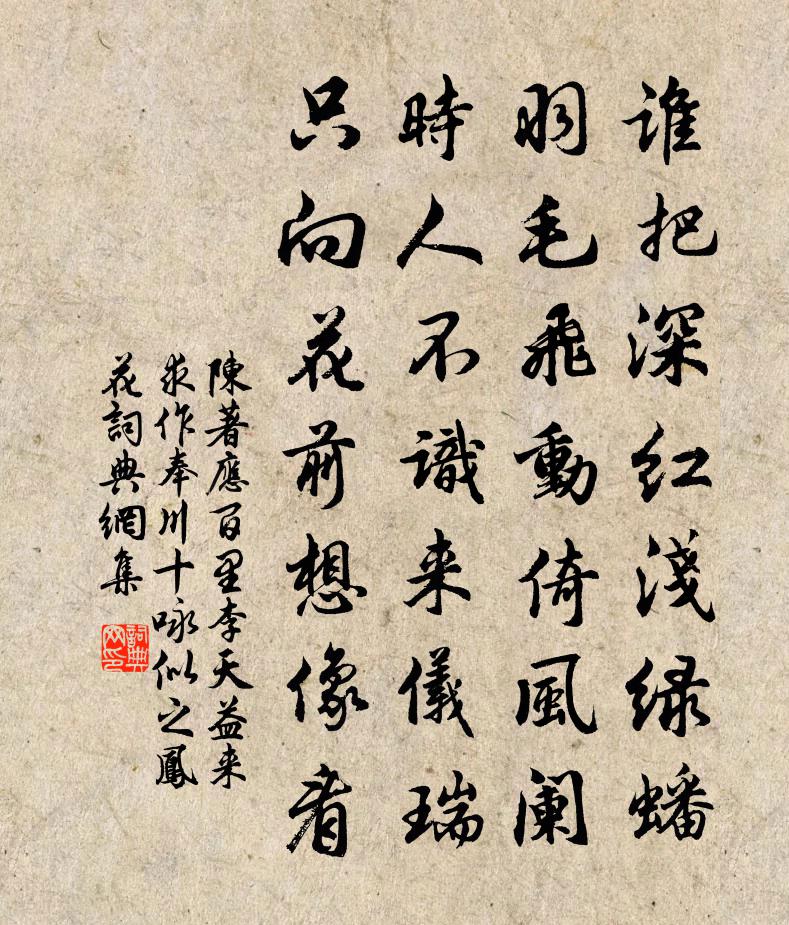 谁把深红浅绿蟠
羽毛飞動倚風阑
時人不識来儀瑞
只向花前想像看
陳著應百里李天益来
求作奉川十咏似之鳳
花詞典網集
詞典网印